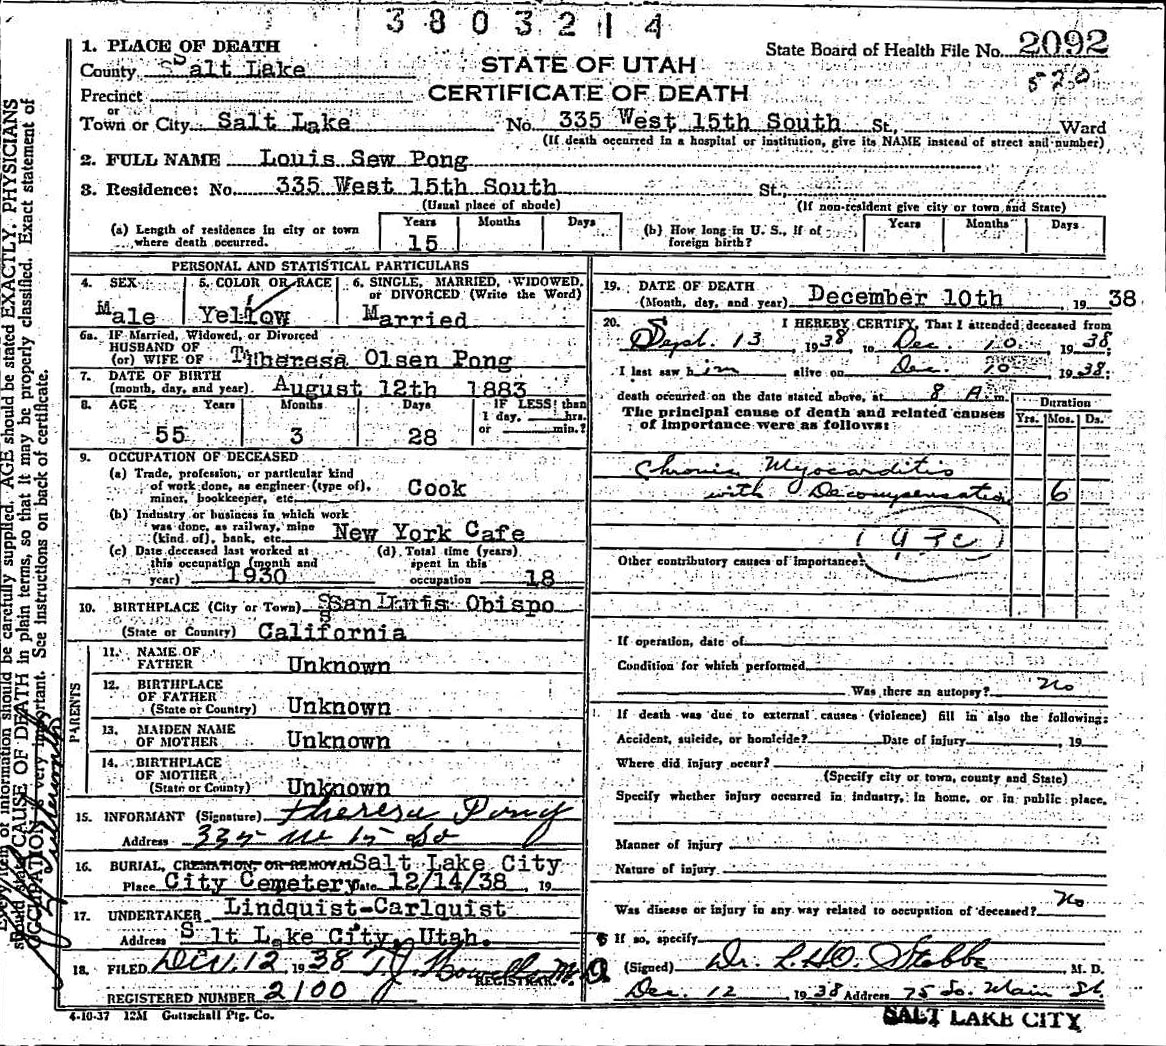 3803214
1. PLACE OF DEATH
State Board of Health File No. 2092
County Salt Lake
STATE OF UTAH
520
Precinct
CERTIFICATE OF DEATH
or
Town or City Salt Lake No. 335 West 15th South St., Ward
(If death occurred in a hospital or institution, give its NAME instead of street and number)
2. FULL NAME Louis Sew Pong
3. Residence: No. 335 West 15th South St.
(Usual place of abode) (If non-resident give city or town and State)
(a) Length of residence in city or town where death occurred. Years 15 Months Days
(b) How long in U. S., if of foreign birth? Years Months Days
PERSONAL AND STATISTICAL PARTICULARS
4. SEX Male
5. COLOR OR RACE Yellow
6. SINGLE, MARRIED, WIDOWED, or DIVORCED (Write the Word) Married
6a. IF Married, Widowed, or Divorced
HUSBAND OF
(or) WIFE OF Theresa Olsen Pong
7. DATE OF BIRTH
(month, day, and year) August 12th 1883
8. AGE Years Months Days IF LESS than 1 day, hrs. or min.?
55 3 28
9. OCCUPATION OF DECEASED
(a) Trade, profession, or particular kind
of work done, as engineer (type of),
miner, bookkeeper, etc. Cook
(b) Industry or business in which work
was done, as railway, mine
(kind of), bank, etc. New York Cafe
(c) Date deceased last worked at
this occupation (month and
year) 1930
(d) Total time (years)
spent in this
occupation 18
10. BIRTHPLACE (City or Town) San Luis Obispo
(State or Country) California
PARENTS
11. NAME OF
FATHER Unknown
12. BIRTHPLACE
OF FATHER
(State or Country) Unknown
13. MAIDEN NAME
OF MOTHER Unknown
14. BIRTHPLACE
OF MOTHER
(State or County) Unknown
15. INFORMANT (Signature) Theresa Pong
Address 335 W 15 So
16. BURIAL, CREMATION, OR REMOVAL Salt Lake City
Place City Cemetery Date 12/14/38, 19
17. UNDERTAKER Lindquist-Carlquist
Address Salt Lake City, Utah.
18. FILED Dec. 12 1938 T.J. Howells M.D.
REGISTRAR.
REGISTERED NUMBER 2100
4-10-37 12M Guttschall Ptg. Co.
19. DATE OF DEATH
(Month, day, and year) December 10th 1938
20. I HEREBY CERTIFY, That I attended deceased from
Sept. 13, 1938 to Dec. 10, 1938
I last saw him alive on Dec. 10 1938;
death occurred on the date stated above, at 8 A. m.
The principal cause of death and related causes
of importance were as follows:
Duration
Yrs. Mos. Ds.
Chronic Myocarditis
with Decompensation 6
93c
Other contributory causes of importance:
If operation, date of
Condition for which performed
Was there an autopsy? No
If death was due to external causes (violence) fill in also the following:
Accident, suicide, or homicide? Date of injury, 19
Where did injury occur?
(Specify city or town, county and State)
Specify whether injury occurred in industry, in home, or in public place.
Manner of injury
Nature of injury
Was disease or injury in any way related to occupation of deceased? No
If so, specify
(Signed) Dr. L.H.O. Stobbe M. D.
Dec. 12 1938 Address 75 So. Main St.
SALT LAKE CITY
item of information should be carefully supplied. AGE should be stated EXACTLY. PHYSICIANS
should state CAUSE OF DEATH in plain terms, so that it may be properly classified. Exact statement of
OCCUPATION is very important. See instructions on back of certificate.